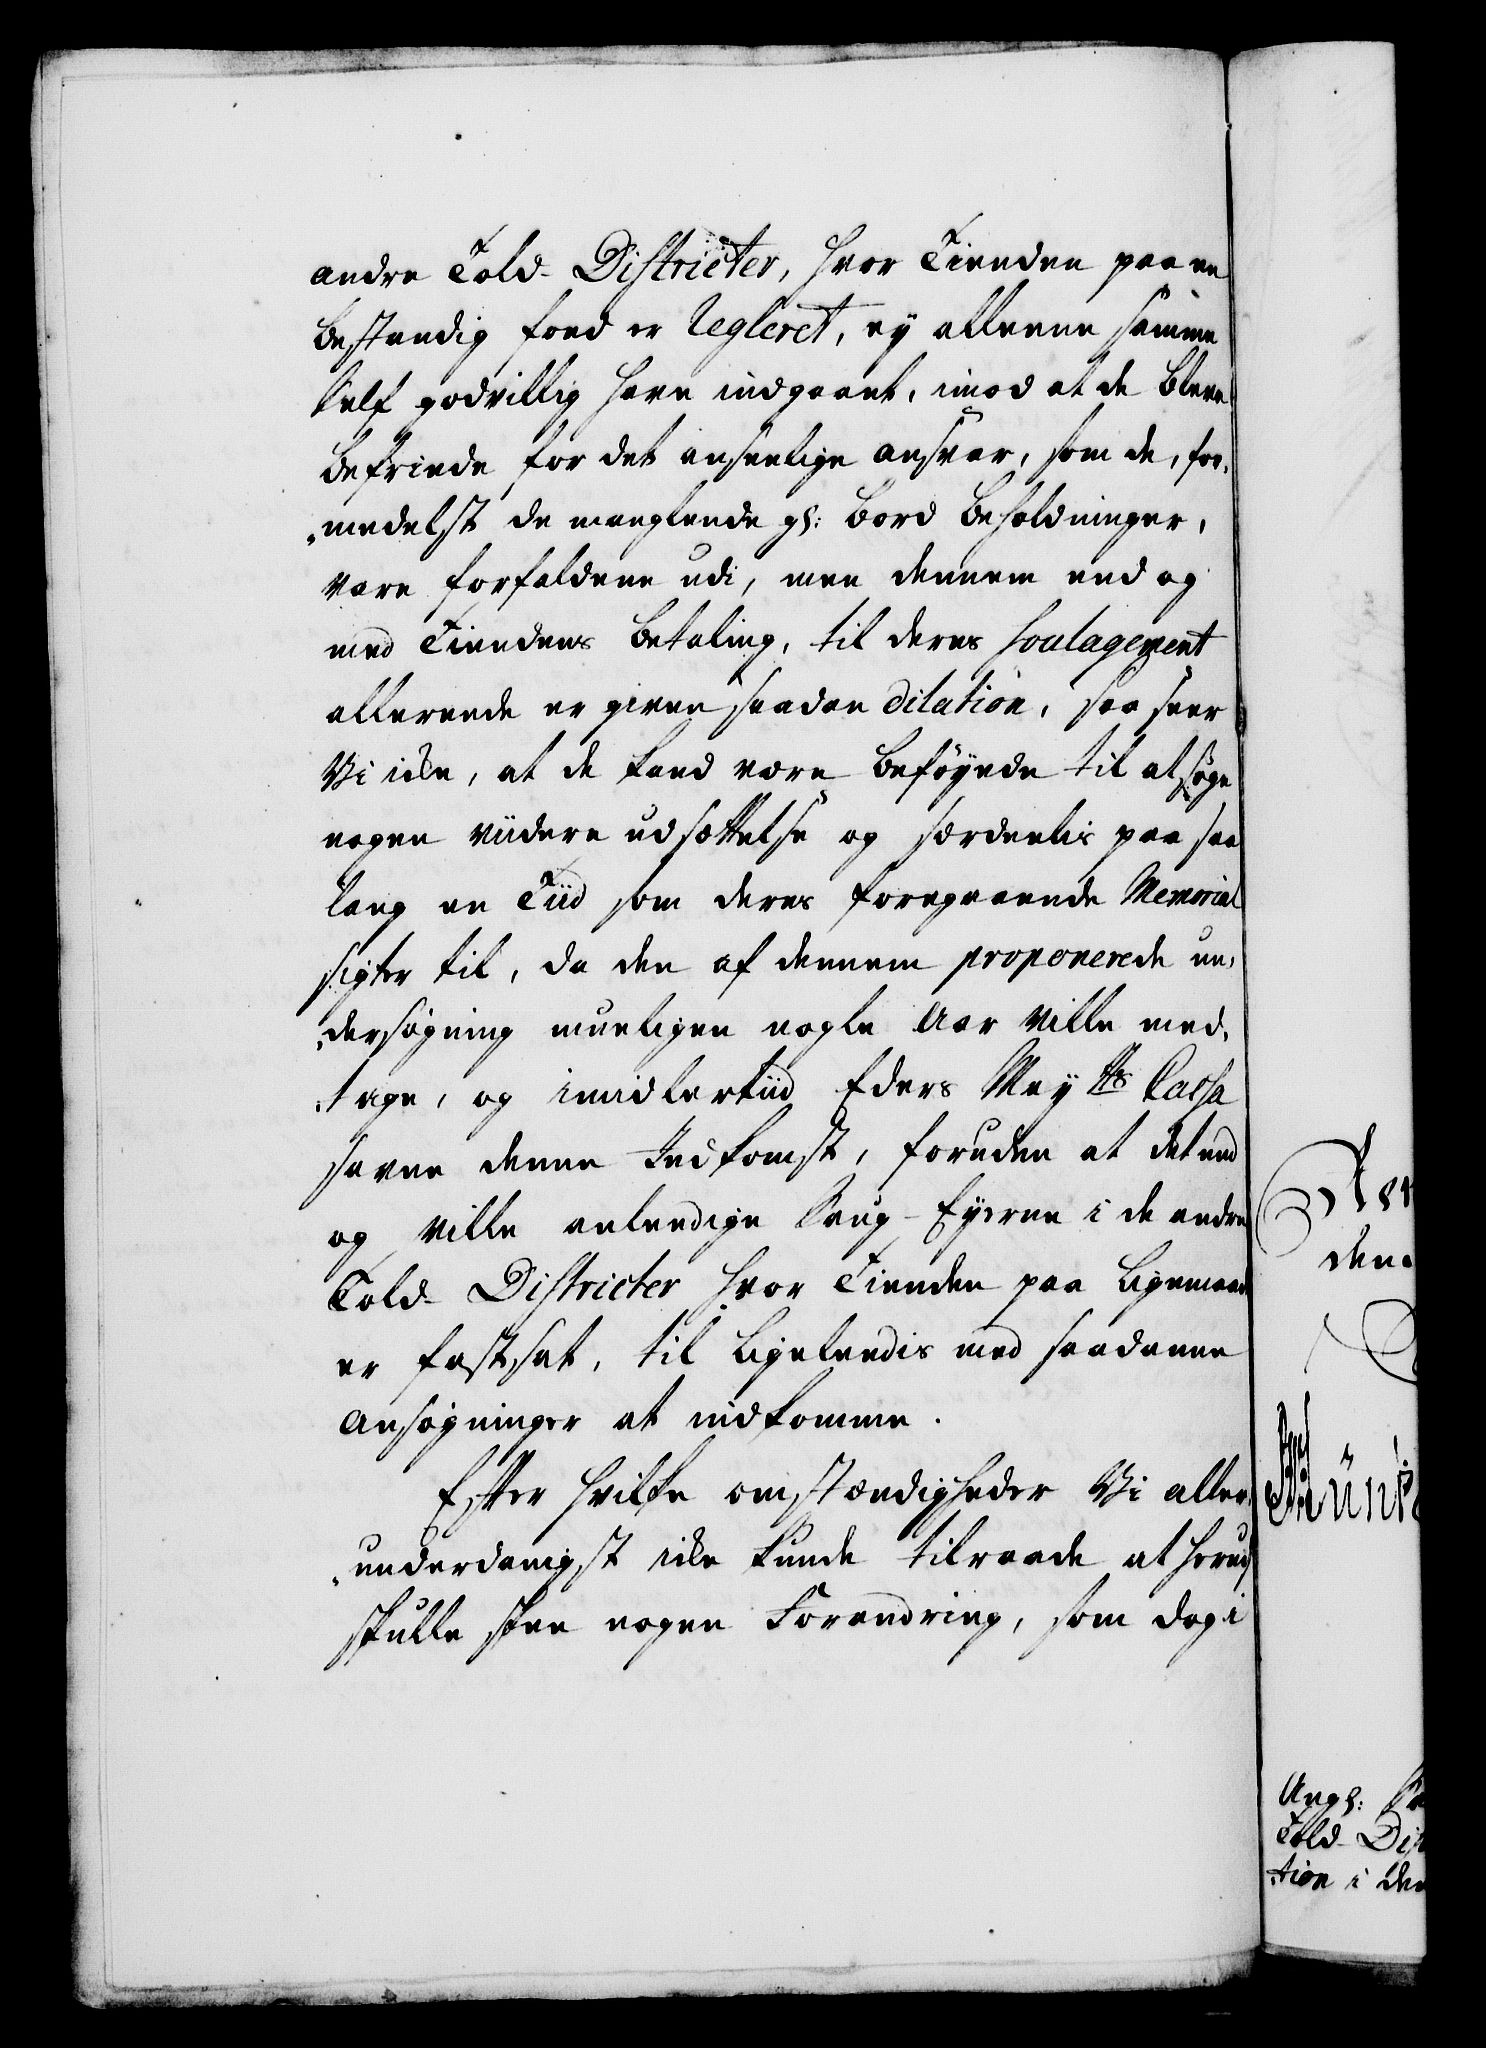 andre Told- Districter, hvor Tienden paa en
bestandig foed er Regleret, ey alleene samme
self godvillig have indgaaet, imod at de bleve
befriede for det anseelige ansvar, som de, for¬
„medelst de manglende gl: Bord Beholdninger,
vare forfaldene udi, men dennem end og
med Tiendens Betaling, til deres Soulagement
allereede er given saadan dilation, saa seer
Vi icke, at de kand være beføyede til at søge
nogen viidere udsættelse og særdeelis paa saa
lang en Tiid som deres foregaaende Memorial
sigter til, da den af dennem proponerede un¬
„dersøgning mueligen nogle Aar ville med¬
„tage, og imidlertiid Eders Mayts Cassa
savne denne Indkomst, foruden at det end
og ville anleedige Saug-Eyerne i de andre
Told- Districter hvor Tienden paa ligemaade
er fastsat, til ligeleedis med saadanne
ansøgninger at indkomme.
Efter hvilke omstændigheder Vi aller¬
„underdanigst icke kunde tilraade at herudj
skulle skee nogen Forandring, som dog i
den
Münk
Ang:
Told- Dis
„tion i den